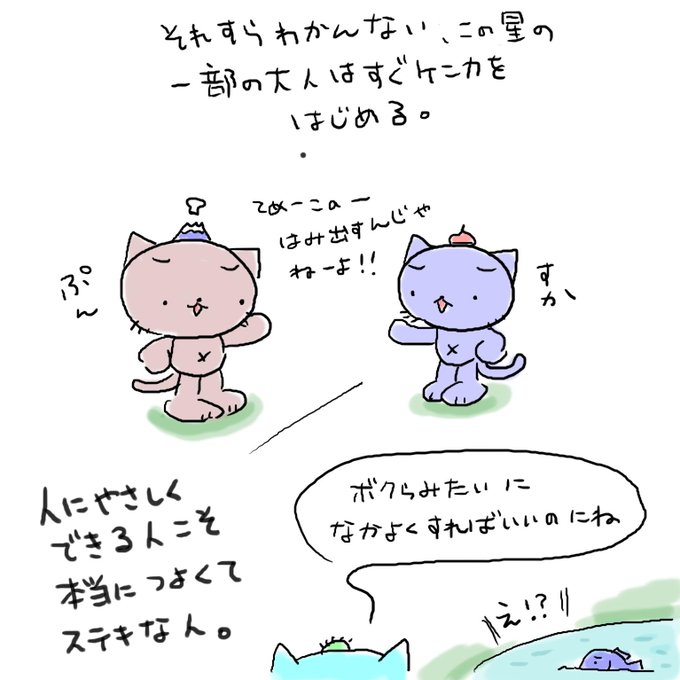 それすらわかんない、この星の
一部の大人はすぐケンカを
はじめる。
てめーこのー
はみ出すんじゃ
ねーよ!!
ぷん
すか
ボクらみたいに
なかよくすればいいのにね
人にやさしく
できる人こそ
本当につよくて
ステキなん。
え!?